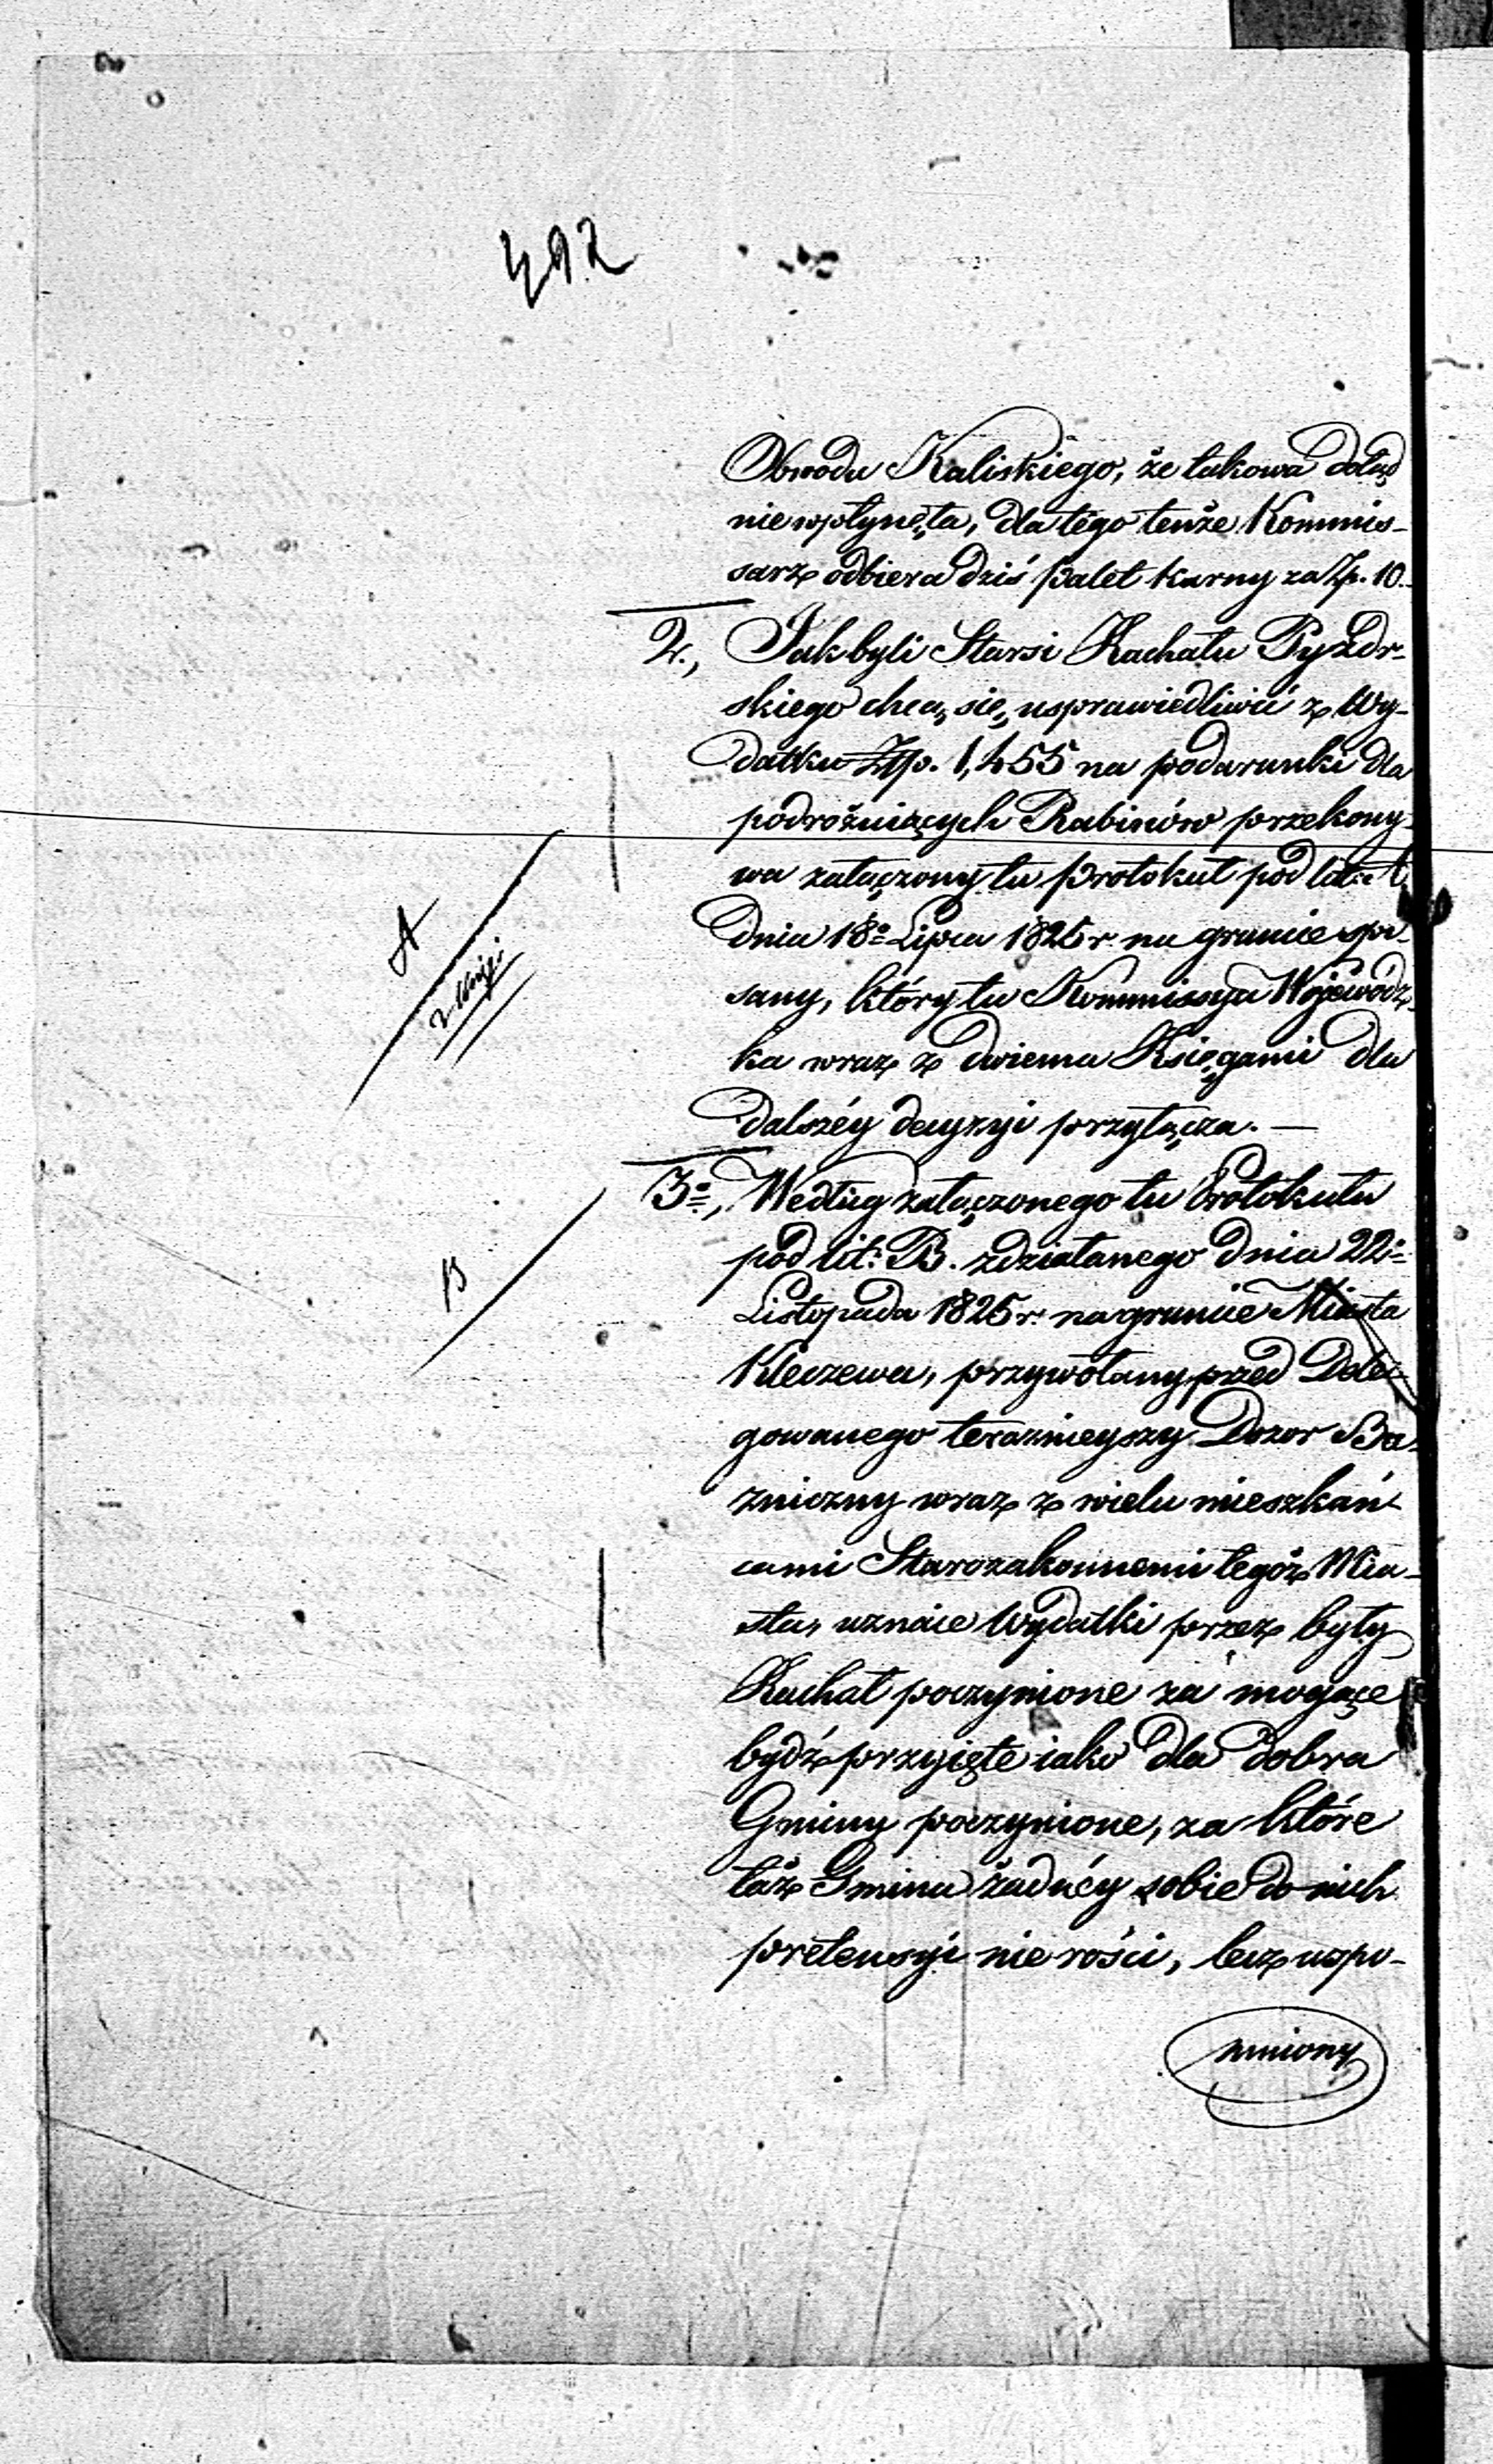 492
Obwodu Kaliskiego, że takowa dotąd
nie wpłynęła, dla tego tenże Kommis-
sarz odbiera dziś palet karny za Zp. 10.
2., Jak byli Starsi Kachału Pyzdr-
skiego chcą się usprawiedliwić z Wy-
datku Złp. 1,455 na podarunki dla
podrożuiących Rabinów przekony-
wa załączony tu protokuł pod lit: A
A
2 Księgi
dnia 18º Lipca 1825 r. na gruncie spi-
sany, który tu Kommissya Wojewódz-
ka wraz z dwiema Księgami dla
dalszéy decyzyi przyłącza. —
3º, Według załączonego tu Protokułu
B
pod lit: B. zdziałanego dnia 22º
Listopada 1825 r. na gruncie Miasta
Kleczewa, przywołany przed Dele-
gowanego teraznieyszy Dozor Bo-
zniczny wraz z wielu mieszkań-
cami Starozakonnemi tegoż Mia-
sta, uznaie Wydatki przez były
Kachał poczynione za mogące
bydź przyięte iako dla dobra
Gminy poczynione, za które
taż Gmina żadnéy sobie do nich
pretensyi nie rości, lecz wspo-
mniony